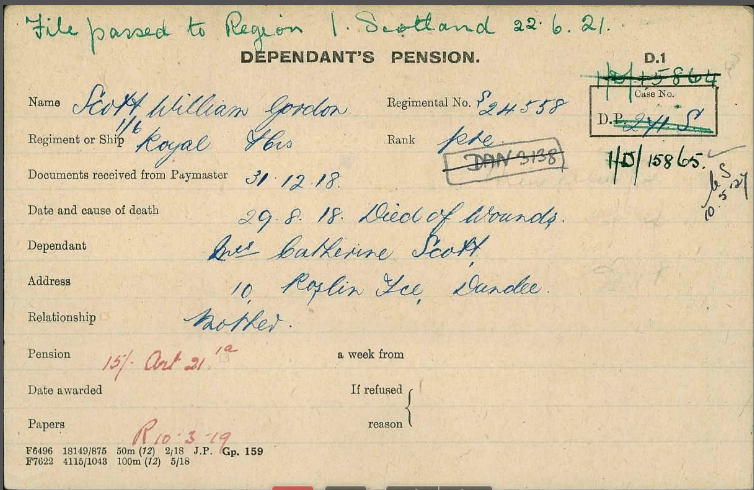 File passed to Region 1. Scotland 22.6.21.
DEPENDANT'S PENSION.
D.1
1/D/15864
Name Scott, William Gordon
Regimental No. S24558
Case No.
D.P. 241 S
Regiment or Ship 1/6 Royal Hrs
Rank pte
DAN 3138
1/D/15865.
Documents received from Paymaster 31.12.18.
10.5.27
Date and cause of death 29.8.18. Died of Wounds.
Dependant Mrs Catherine Scott
Address 10, Roslin Tce, Dundee.
Relationship Mother.
Pension 15/- Art 21 1a a week from
Date awarded If refused
Papers R 10.3.19 reason
F6496 18149/875 50m (12) 2/18 J.P. Gp. 159
F7622 4115/1043 100m (12) 5/18